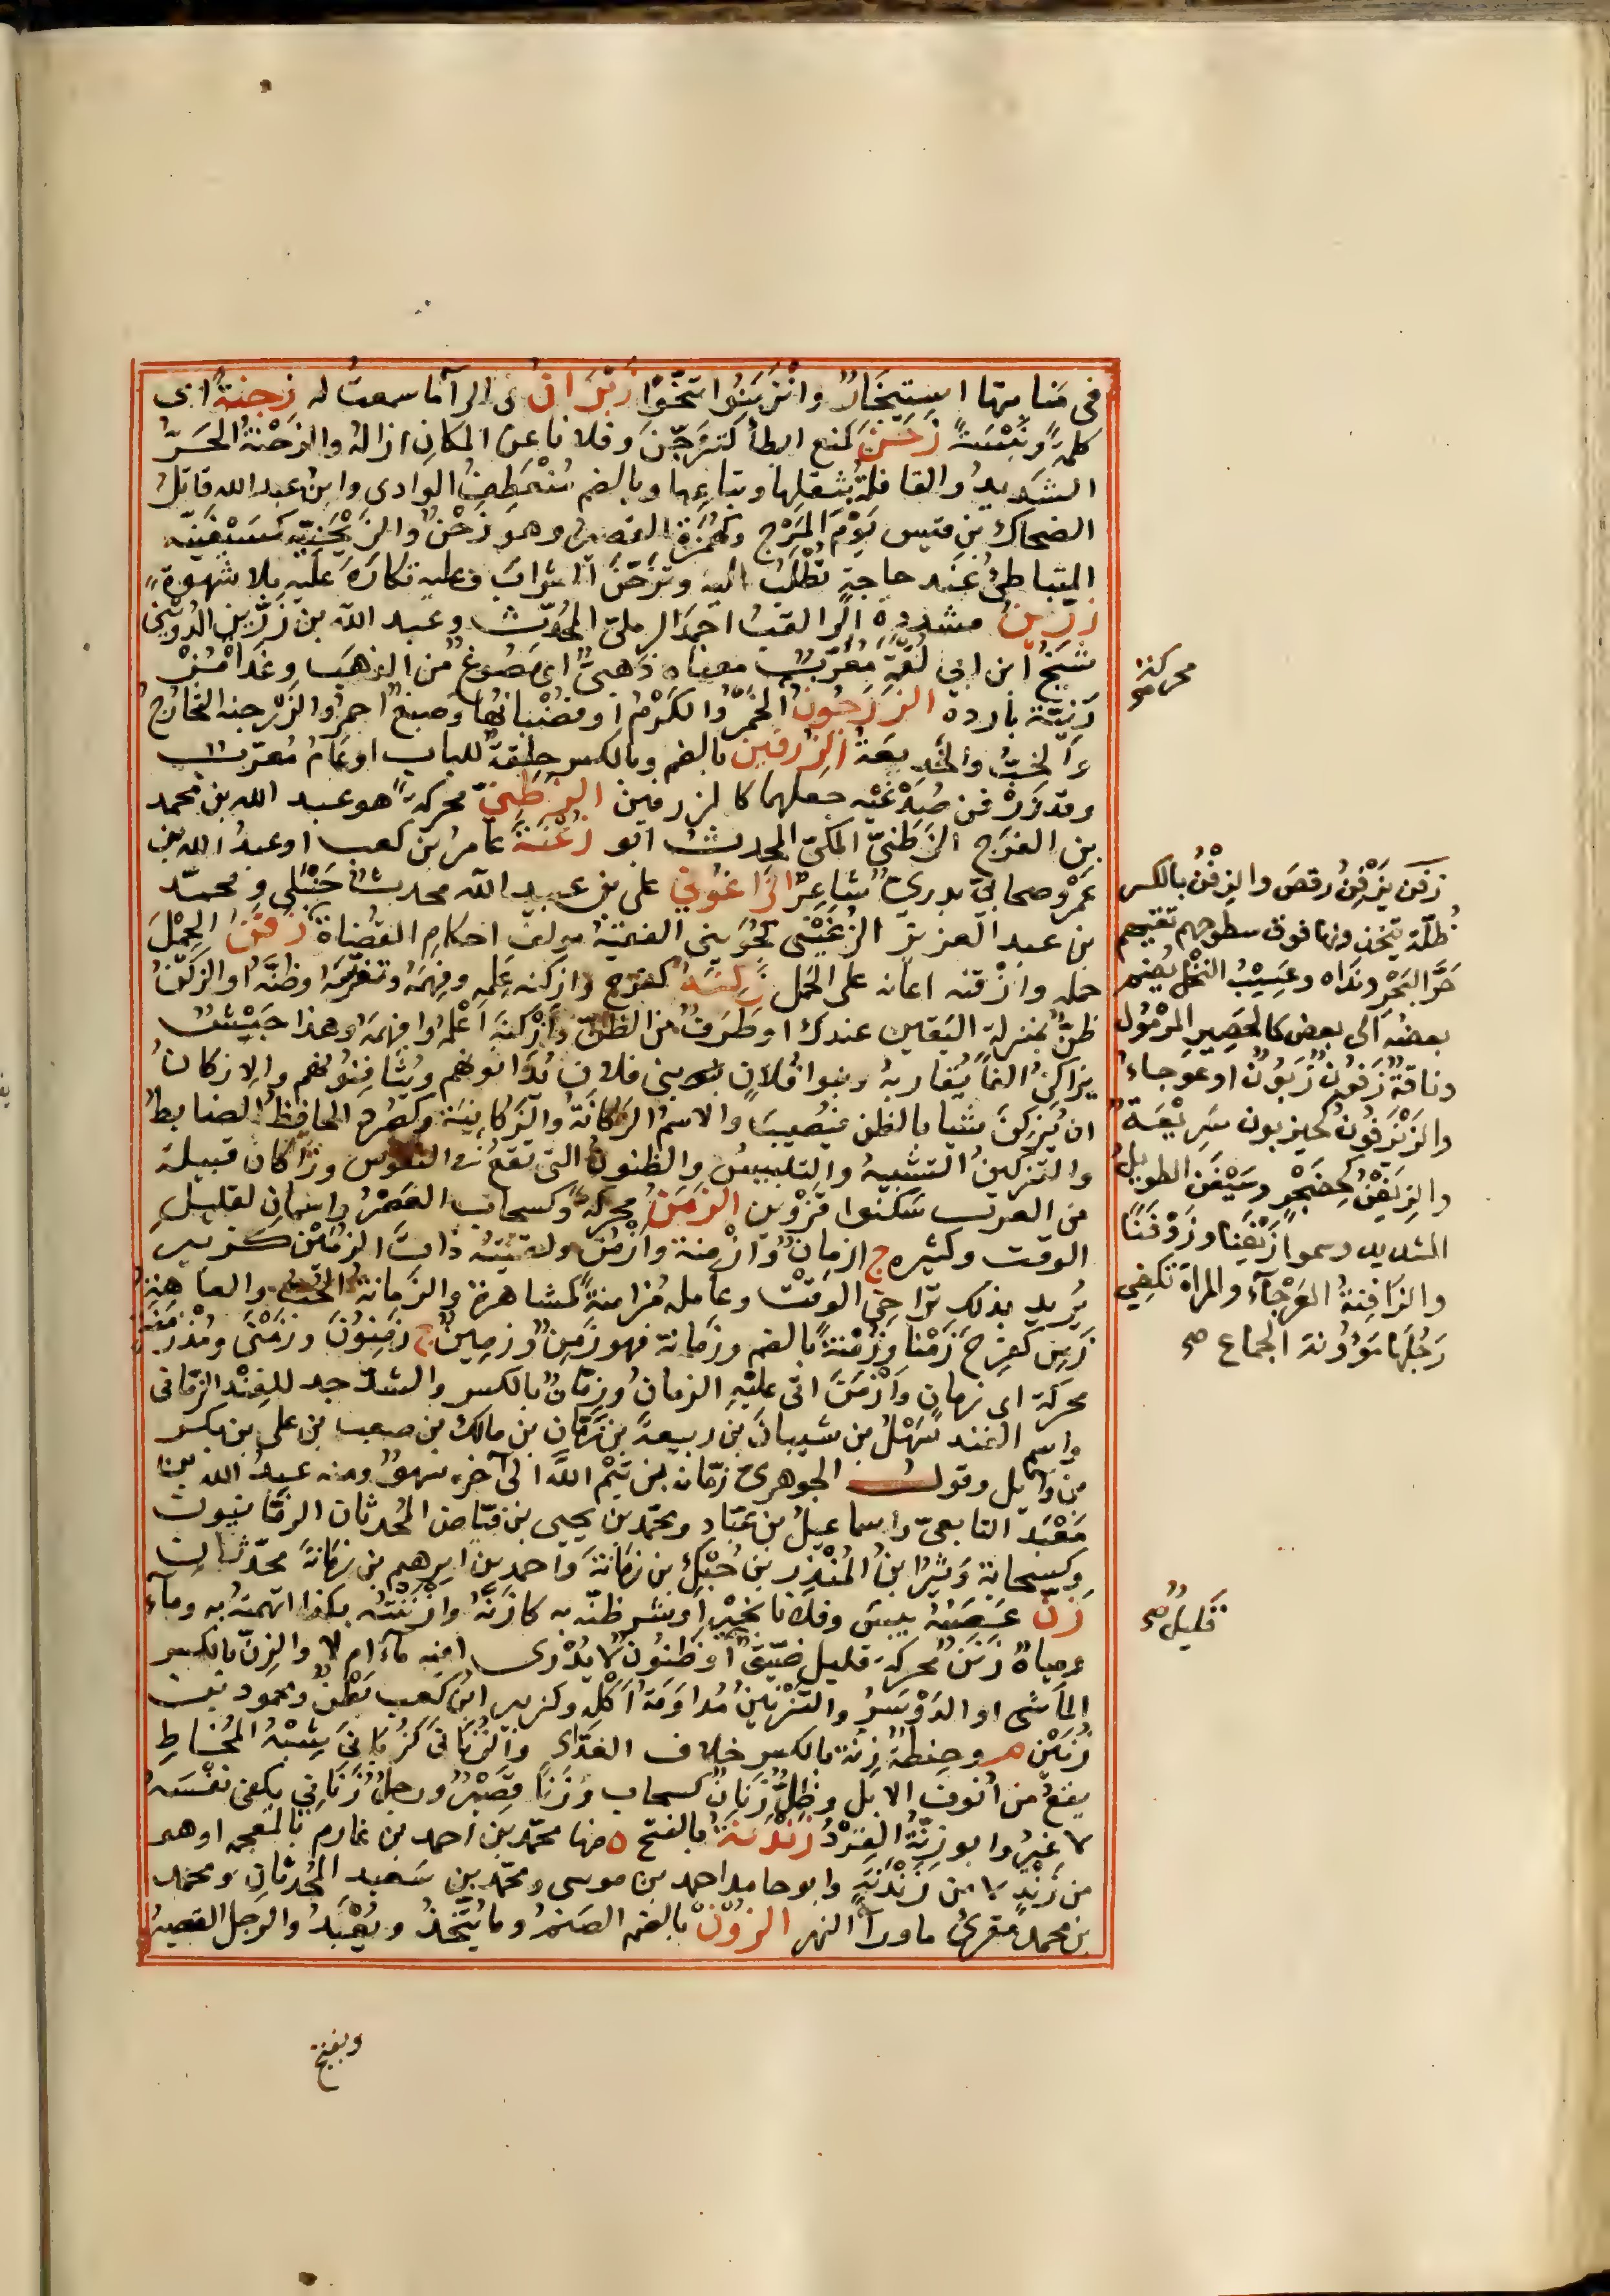 فى مَنامتها استِئخَارٌ وانْزَبَنُوا تنَحَّوْا زَبْرَانُ ى الرآ ما سمعتُ له زِجنَةً اى
كلمةً ونَبْسَةً زَحَنَ كمنع ابطأ كتَزَحَّنَ وفلانا عن المكانِ ازالهُ والزَحْنةُ الحَرّ
الشديدُ والقافلةُ بثِقلها وتباعِها وبالضم مُنْعَطِفُ الوادى وابنُ عبد الله قاتلُ
الضحاكِ بن قيس يَوْمَ المَرْج وكهُمَزةٍ القصيرةُ وهو زُحَنٌ والزِيَحْنّةُ كسِيَفْنّة
المتباطئُ عند حاجةٍ تُطْلَبُ اليه وتزَحّنَ الشرابَ وعليه تكارَهَ عليه بلا شهوة
زَرّينُ مشددة الرا لقبُ احمدَ الرمليّ المحُدّث وعبد الله بن زَرّين الدُوَيْنى
شَيخُ ابن ابى لُقْمَةَ مُعَرَّبٌ معناه ذَهبىٌّ اى مَصُوغٌ من الذهَب وغَدَاةٌ مُزْ
زَنِيّة باردة الزَرَجُونُ الخَمْرُ والكَرْمُ او قضْبانُها وصبغٌ احمرُ والزَرْجنه التخارجُ
والخَبُّ والخَديعَةُ الزُرفينُ بالضم وبالكسر حلقةٌ للباب او عَامٌ مُعرّبٌ
وقد زَرْفَن صُدْغَيْه جعلهما كالزرفين الزَطَنِيّ محركةً هو عبد الله بن محمد
بن الفرَج الزَطَنىُّ المكىّ المحدثُ ابو زَعْنَةَ عامرُ بن كعب او عبدُ الله بن
عَمْرو صحابيّ بدرىّ شاعِرٌ الزَاغُونى على بن عبيد الله محدث حَنْبَلى ومحمد
بن عبد العزيز الزُغَيْنى كحُوَيني الفقيهُ مولف احكام القُضاة زقنَ الحِمْلَ
حمله وازْقنه اعانه على الحَمل زَكِنَهُ كفرح وازكنه عَلِمه وفهِمَهُ وتفرَّسَهُ وظنَّه او الزَكَنُ
ظنٌّ بمنزلة اليَقين عندك او طَرَفٌ من الظنّ وَازْكنَهُ اعْلَمَهُ وافهمَهُ وهذا جَيْشٌ
يزاكن الفاً يُقاربهُ وبنوا فُلانٍ يزاكنون بنى فلان يُدَانونهم ويُثَافِنُونهم والازكانُ
ان يُزكنَ شيا بالظن فيُصِيبَ والاسمُ الزكانَةُ والزَكَانِيَة وكصُرَد الحَافِظُ الضابطُ
والتزكينُ التشبيهُ والتلبيسُ والظنونُ التى تقعُ فى النفوس وزَاكان قبيلة
من العرب سَكنوا قزوِين الزَمَنُ محركةً وكسحاب العَصْرُ واسمان لقليل
الوقت وكثيره ج ازمانٌ وَازْمنة وأزْمُن ولقيتُه ذاتَ الزمَيْن كزبير
يُريد بذلك ترَاخِىَ الوَقتْ وعامله مُزامنَةً كمشاهرةً والزَمانةُ الحُبُّ والعَاهَةُ
زَمِنَ كفرِحَ زَمَنًا وزُمْنةً بالضم وزَمانة فهو زَمِنٌ وزمِينٌ ج زَمِنُونَ وزَمْنَى ومُذْ زَمَنَة
محركة اى زمانٍ وأزْمَنَ اتى عليْهِ الزمانُ وزِمّانٌ بالكسر والشدّ جد للفِنْد الزمّانى
واسم الفند شَهْلُ بن شيبانَ بن ربيعةَ بن زِمّانِ بن مالك بن صعب بن على بن بكر
بن وَايل وقولُ الجوهرىّ زمّان بن تَيْم الله الى آخره سهوٌ ومنه عبدُ الله بن
مَعْبَد التابعىّ واسماعيلُ بن عبّاد ومحمّد بن يحيى بن فيّاض المحُدثان الزمّانيون
وكسِحابة وَثِيرُ ابنُ المُنْذِر بن حُبْك بن زمَانةَ واحمد بن ابرهيم بن زمانةَ محدّثان
زَنَّ عَصَبُهُ يبِسَ وفلانا بخيرٍ او شر ظنّه به كازَنَّهُ وازْننْتُه بكذا اتهمتهُ به ومآءٌ
ومياهٌ زَنَنٌ محركة قليل ضَيّقٌ او ظنُونٌ لا يُدْرى افيه مآء ام لا والزِنّ بالكسر
المَاشُ او الدَوْسَرُ والتزنينُ مُدَاوَمَةُ اكْلِه وكزبير ابنُ كعب بَطْنٌ ومحمود بن
زُنَيْن م وحِنطةٌ زِنَّة بالكسر خلاف الغَذى والزُنَانَى كزُبَانَى شِبْهُ المُخاطِ
يقعُ من أنوف الابل وظِلٌّ زَنَانٌ كسحاب وزَنَاءٌ قصِيْرٌ ورجلٌ زُنَانِي يكفى نفْسَهُ
لا غيرُ وابو زِنّةَ القِرْدُ زَنْدَنَةُ بالفتح ة منها محمّد بن احمد بن غارم بالمعجمه او هو
من زَنْدٍ لا من زَنْدَنَةَ وابو حامد احمد بن موسى ومحمّد بن سَعيد المُحدثان ومحمد
بن محمد مقرئُ ماورآ النهر الزُوْنُ بالضم الصَنمُ وما يُتّخذُ ويُعْبَدُ والرجل القصيرُ
وبفتح
محركة صح
زفَن يَزْفِنُ رقصَ والزِفْنُ بالكسر
ظلّة يتخذونها فوق سطوحهم تقيهم
حَرَّ البَحْر ونَدَاه وعَسِيْبُ النخل يُضم
بعضُه الى بعض كالحَصِير المَرْمُول
وناقَةٌ زَفُونٌ زَبُونٌ او عوجاءُ
والزَيْزَفُونُ كحيزبون سَرِيْعَةٌ
والزِيَفْنُ كحِضَجْرٍ وسَيْفَن الطويلُ
الشديد وسموا زَيْفَنا وزَوْفَنًا
والزَافِنةُ العَرْجآءُ والمراةُ تكفِي
رَجُلَها مَؤُونة الجماع صح
قليلٌ صح